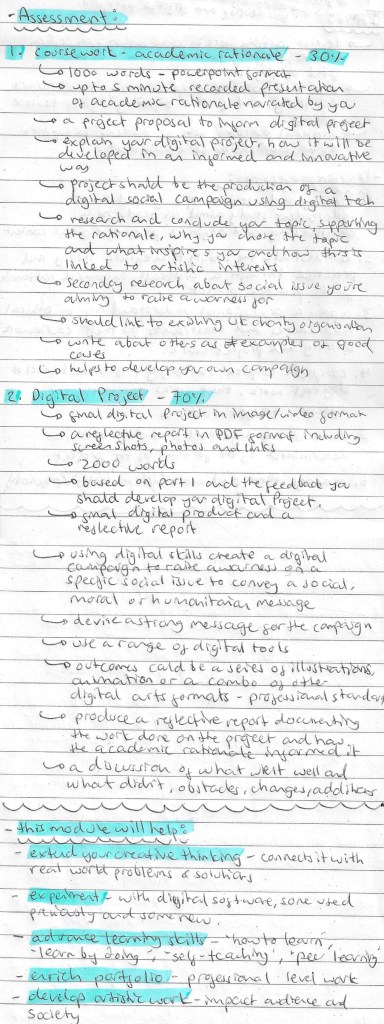 - Assessment:
1. Coursework - academic rationale - 30%
↳ 1000 words - powerpoint format
↳ up to 5 minute recorded presentation
of academic rationale narrated by you
↳ a project proposal to inform digital project
↳ explain your digital project, how it will be
developed in an informed and innovative
way
↳ project should be the production of a
digital social campaign using digital tech
↳ research and conclude your topic, supporting
the rationale, why you chose the topic
and what inspires you and how this is
linked to artistic interests
↳ secondary research about social issue you're
aiming to raise awarness for
↳ should link to existing UK charity organisation
↳ write about others as examples of good
cases
↳ helps to develop your own campaign
2. Digital Project - 70%
↳ final digital project in image/video format
↳ a reflective report in PDF format including
screenshots, photos and links
↳ 2000 words
↳ based on part 1 and the feedback you
should develop your digital project.
↳ final digital product and a
reflective report
↳ using digital skills create a digital
campaign to raise awarness on a
specific social issue to convey a social,
moral or humanitarian message
↳ devise a strong message for the campaign
↳ use a range of digital tools
↳ outcomes could be a series of illustrations,
animation or a combo of other
digital arts formats - professional standard
↳ produce a reflective report documenting
the work done on the project and how
the academic rationale informed it
↳ a discussion of what went well and
what didn't, obstacles, changes, additions
- this module will help:
- extend your creative thinking - connects it with
real world problems & solutions
- experiment - with digital software, some used
previously and some new.
- advance learning skills - 'how to learn',
'learn by doing', 'self-teaching', 'peer learning'
- enrich portfolio - professional level work
- develop artistic work - impact audience and
society